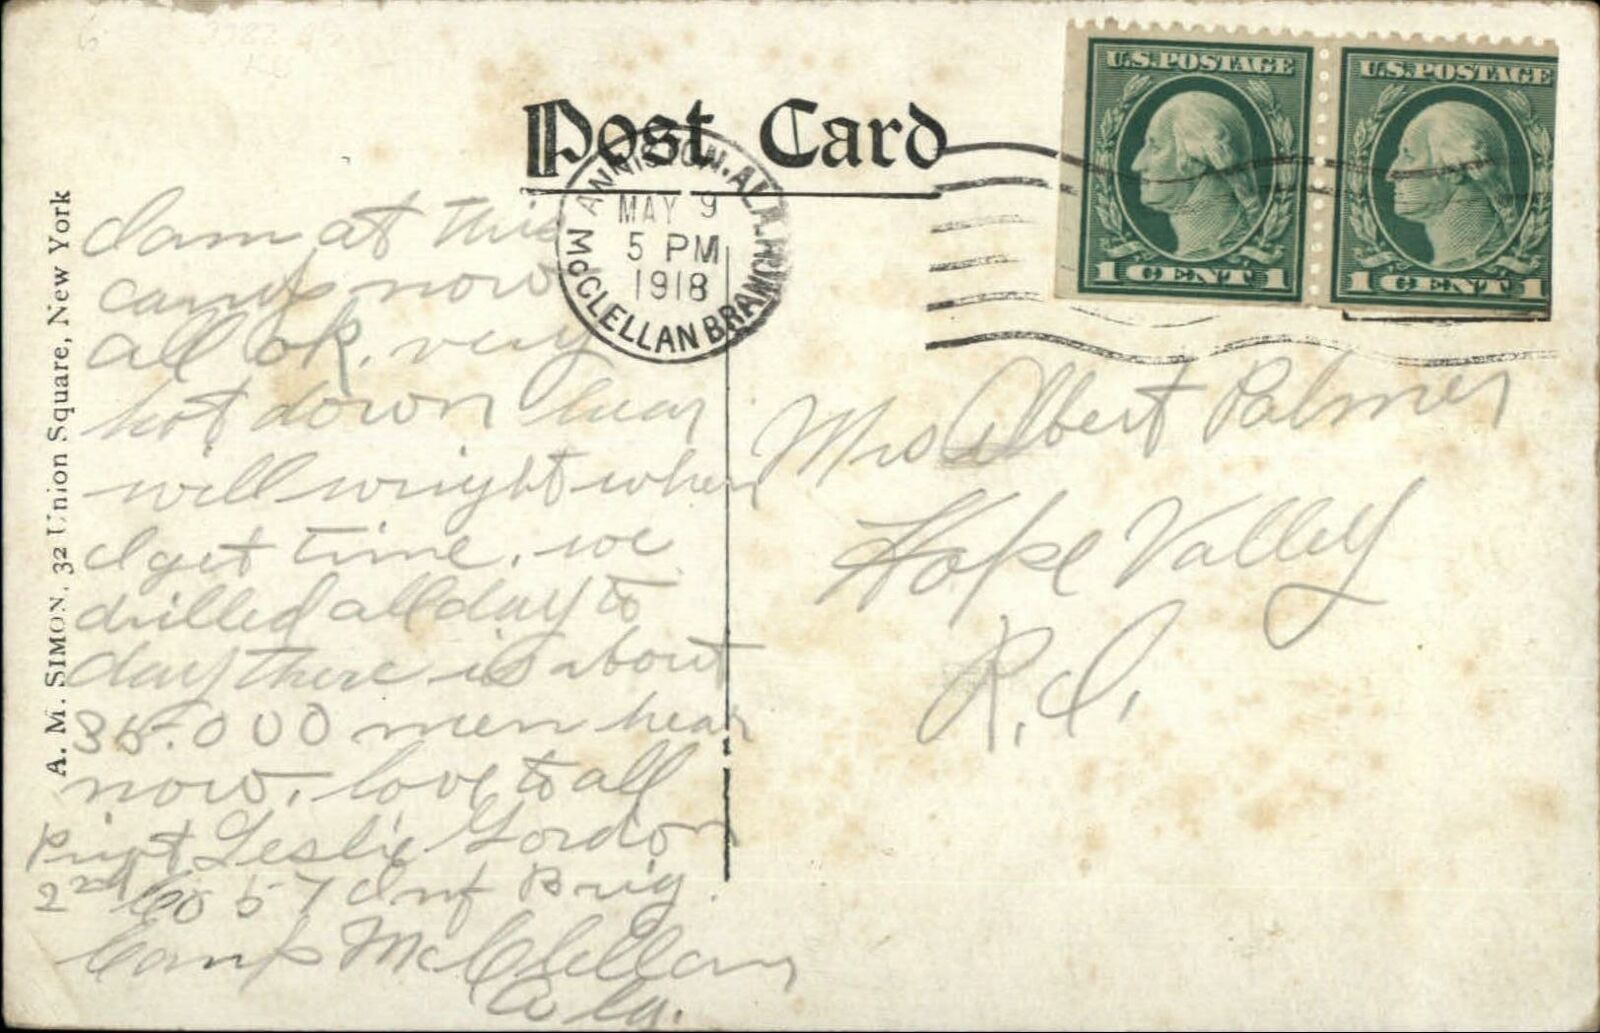 Post Card
U.S. POSTAGE
1 CENT 1
U.S. POSTAGE
1 CENT 1
ANNISTON, ALA.
MAY 9
5 PM
1918
McCLELLAN BRANCH
A. M. SIMON, 32 Union Square, New York
I am at this
camp now
all ok, very
hot down hear
will wright when
I get time, we
drilled all day to
day there is about
35.000 men hear
now, love to all
Privt Leslie Gordon
2nd Co 57 Inf Brig.
Camp McClellan
Ala.
Mrs Albert Palmer
Hope Valley
R.I.